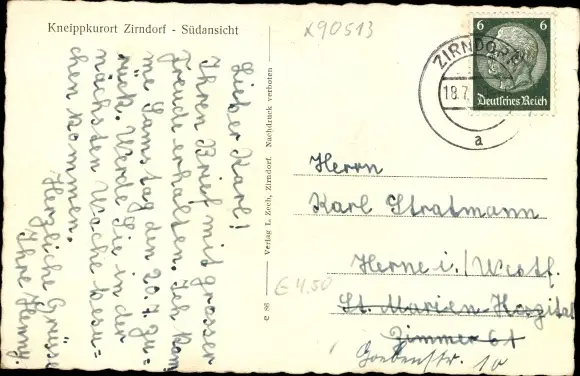 Kneippkurort Zirndorf - Südansicht
x90513
Lieber Karl!
Ihren Brief mit grosser
Freude erhalten. Ich kom
me Samstag den 20.7. zu-
rück. Werde Sie in der
nächsten Woche besu-
chen kommen.
Herzliche Grüsse
Ihre Henny.
Verlag L. Zech, Zirndorf. Nachdruck verboten
e 86
€ 4,50
6 6
Deutsches Reich
ZIRNDORF
18.7.
a
Herrn
Karl Stratmann
Herne i./Westf.
St. Marien-Hospital
Zimmer 61
Goebenstr. 10